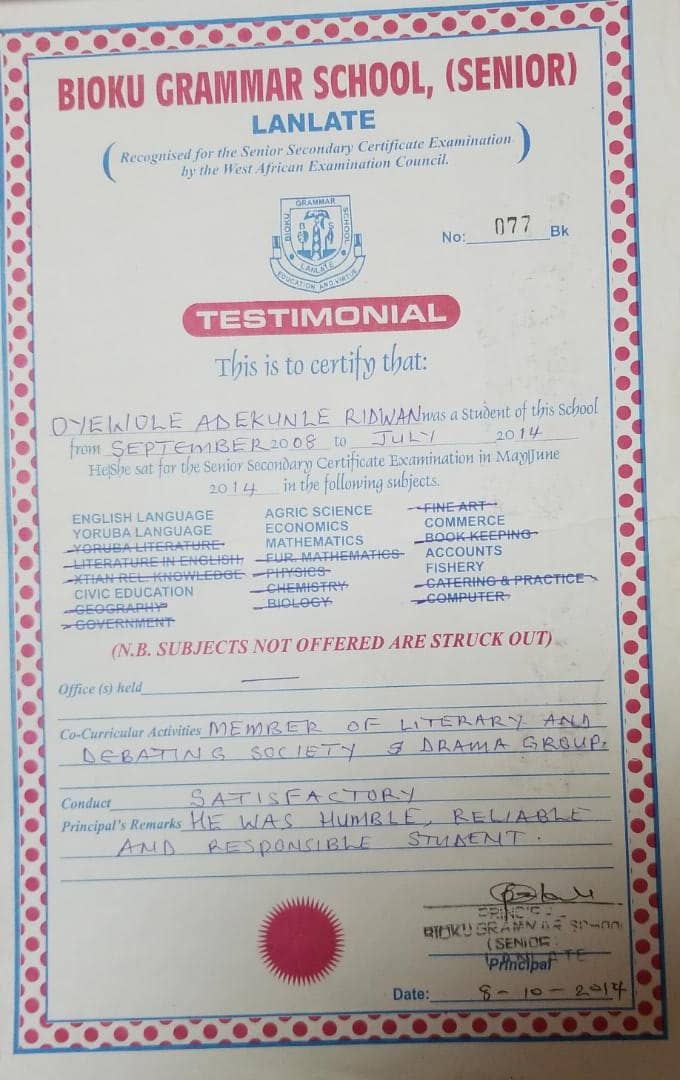 BIOKU GRAMMAR SCHOOL, (SENIOR)
LANLATE
(Recognised for the Senior Secondary Certificate Examination
by the West African Examination Council.)
GRAMMAR
BIOKU
SCHOOL
LANLATE
EDUCATION AND VIRTUE
No: 077 Bk
TESTIMONIAL
This is to certify that:
OYEWOLE ADEKUNLE RIDWAN was a Student of this School
from SEPTEMBER 2008 to JULY 2014
He/She sat for the Senior Secondary Certificate Examination in May/June
2014 in the following subjects.
ENGLISH LANGUAGE
YORUBA LANGUAGE
YORUBA LITERATURE
LITERATURE IN ENGLISH
XTIAN REL. KNOWLEDGE
CIVIC EDUCATION
GEOGRAPHY
GOVERNMENT
AGRIC SCIENCE
ECONOMICS
MATHEMATICS
FUR. MATHEMATICS
PHYSICS
CHEMISTRY
BIOLOGY
FINE ART
COMMERCE
BOOK KEEPING
ACCOUNTS
FISHERY
CATERING & PRACTICE
COMPUTER
(N.B. SUBJECTS NOT OFFERED ARE STRUCK OUT)
Office (s) held
Co-Curricular Activities MEMBER OF LITERARY AND
DEBATING SOCIETY & DRAMA GROUP.
Conduct SATISFACTORY
Principal's Remarks HE WAS HUMBLE, RELIABLE
AND RESPONSIBLE STUDENT.
BIOKU GRAMMAR SCHOOL
(SENIOR
LANLATE
Principal
Date: 8-10-2014